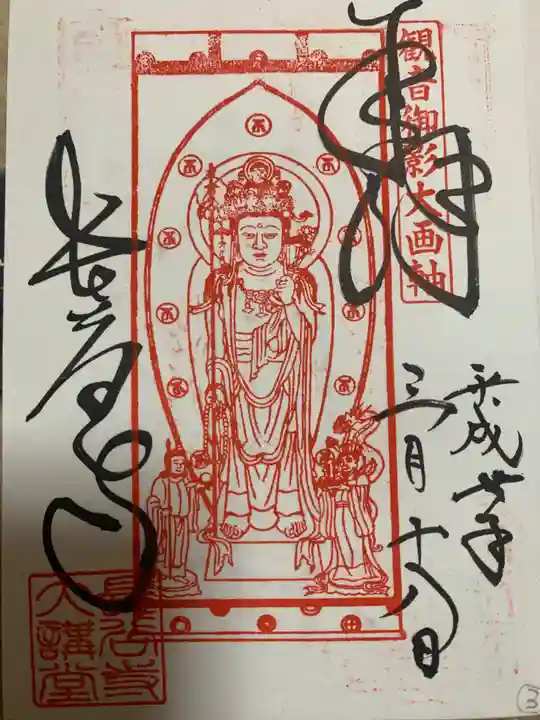 観音御影大画軸
奉拝
平成
三月十八日
長谷寺
長谷寺
大講堂
③